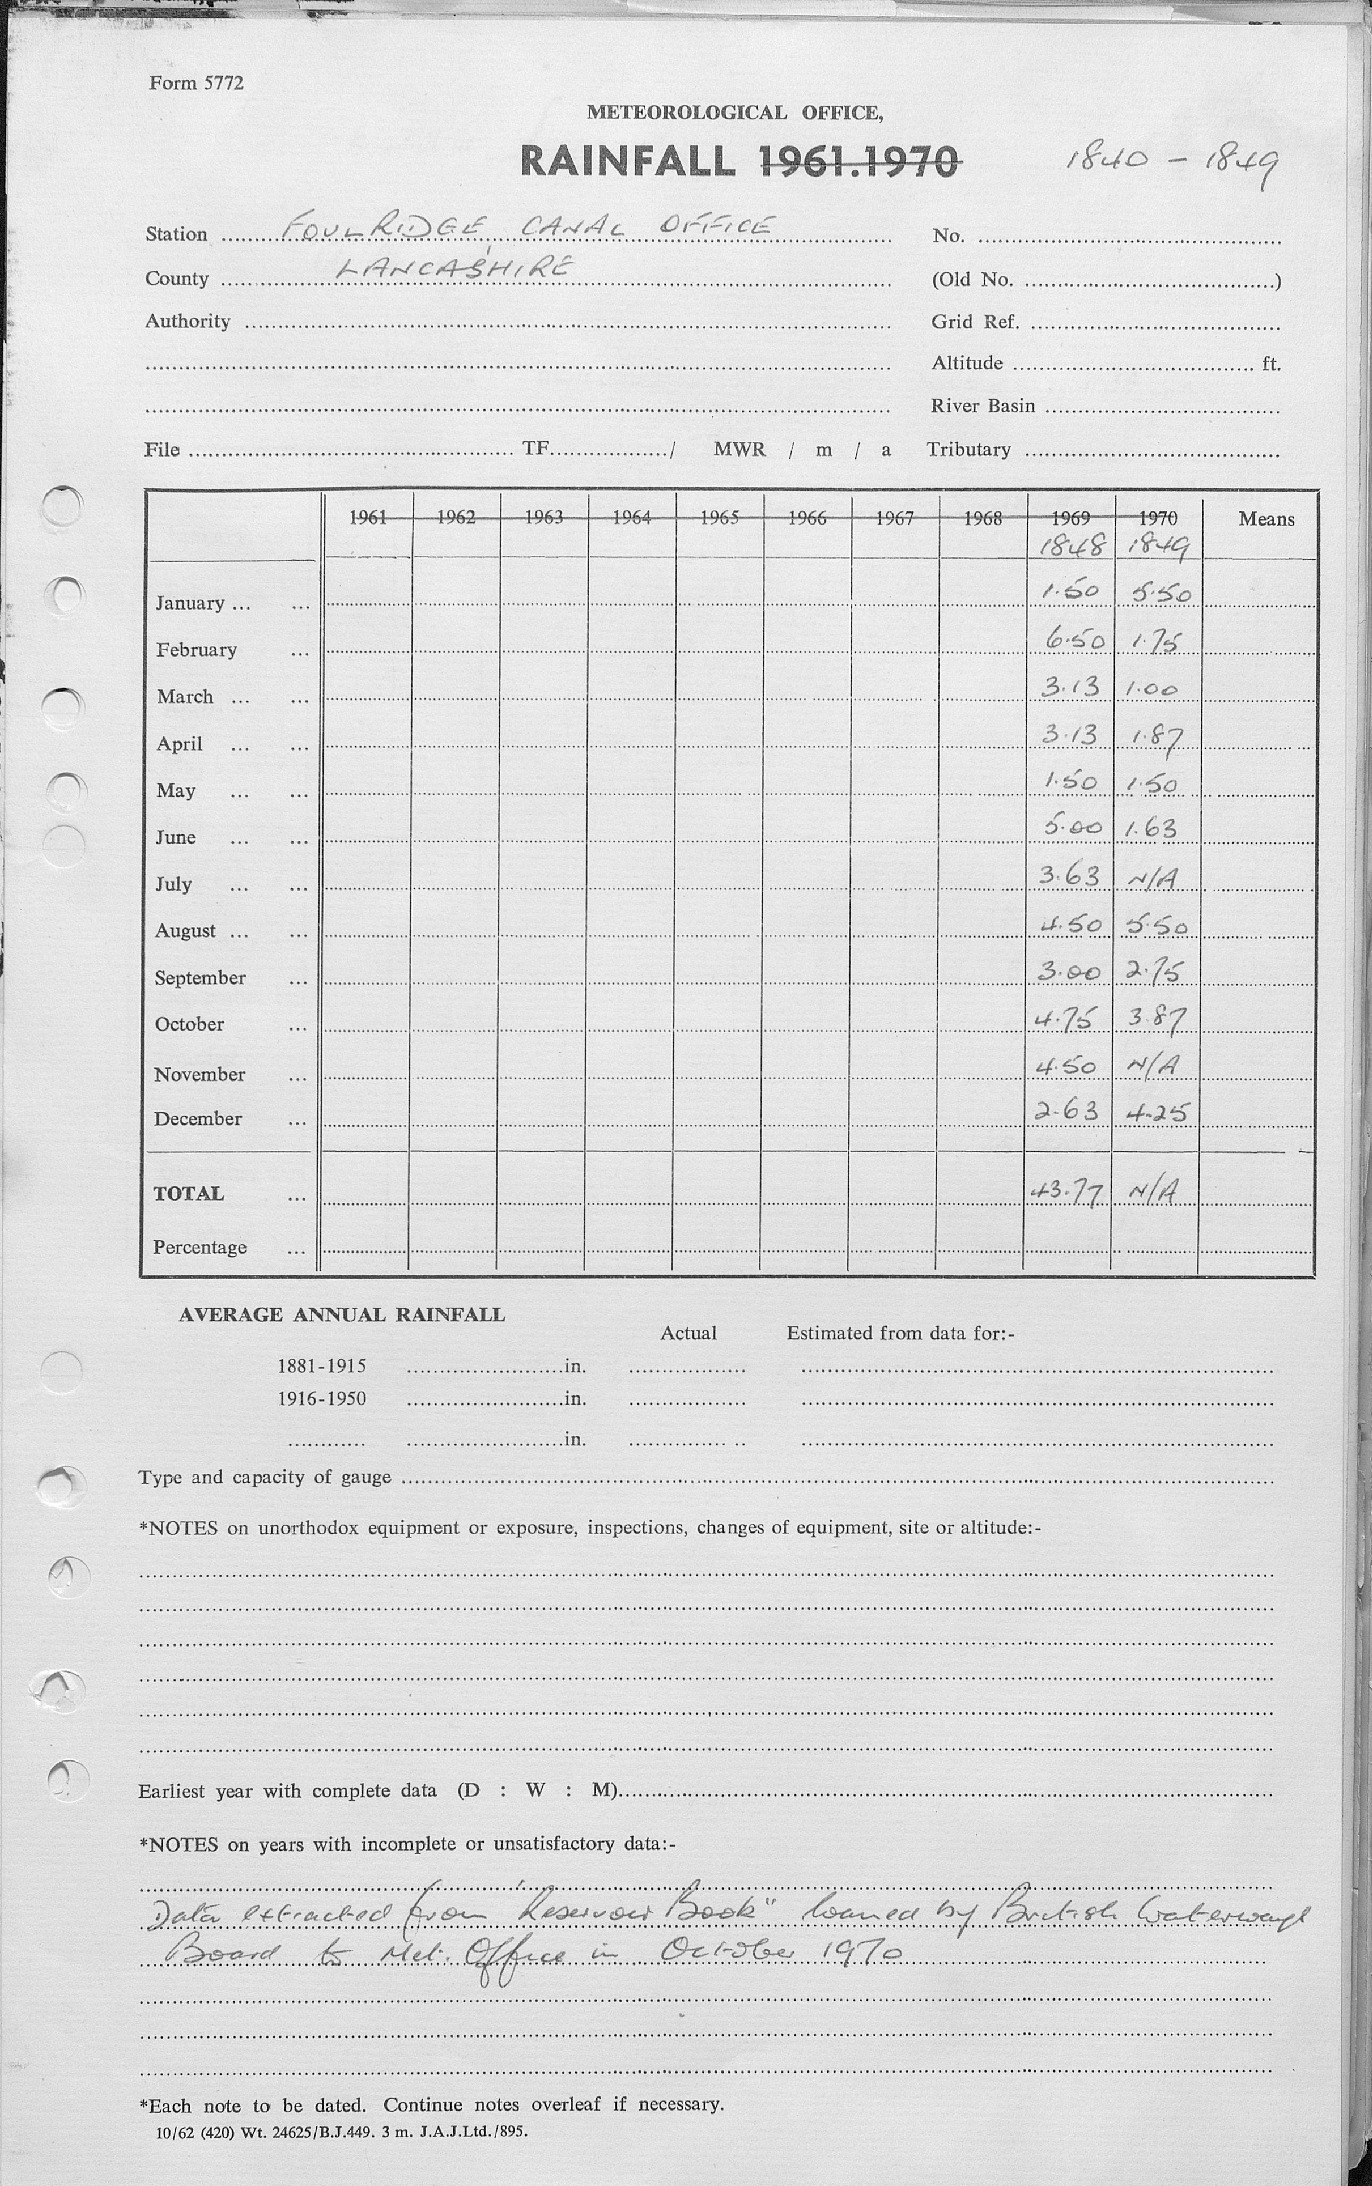 Form 5772
METEOROLOGICAL OFFICE,
RAINFALL 1961.1970 1840 - 1849
Station FOULRIDGE CANAL OFFICE No.
County LANCASHIRE (Old No. )
Authority Grid Ref.
Altitude ft.
River Basin
File TF. / MWR / m / a Tributary
1961 1962 1963 1964 1965 1966 1967 1968 1969 1970 Means
1848 1849
January ... ... 1.50 5.50
February ... 6.50 1.75
March ... ... 3.13 1.00
April ... ... 3.13 1.87
May ... ... 1.50 1.50
June ... ... 5.00 1.63
July ... ... 3.63 N/A
August ... ... 4.50 5.50
September ... 3.00 2.75
October ... 4.75 3.87
November ... 4.50 N/A
December ... 2.63 4.25
TOTAL ... 43.77 N/A
Percentage ...
AVERAGE ANNUAL RAINFALL
Actual Estimated from data for:-
1881-1915 in.
1916-1950 in.
in.
Type and capacity of gauge
*NOTES on unorthodox equipment or exposure, inspections, changes of equipment, site or altitude:-
Earliest year with complete data (D : W : M)
*NOTES on years with incomplete or unsatisfactory data:-
Data extracted from "Reservoir Book" loaned by British Waterways
Board to Met. Office in October 1970
*Each note to be dated. Continue notes overleaf if necessary.
10/62 (420) Wt. 24625/B.J.449. 3 m. J.A.J.Ltd./895.